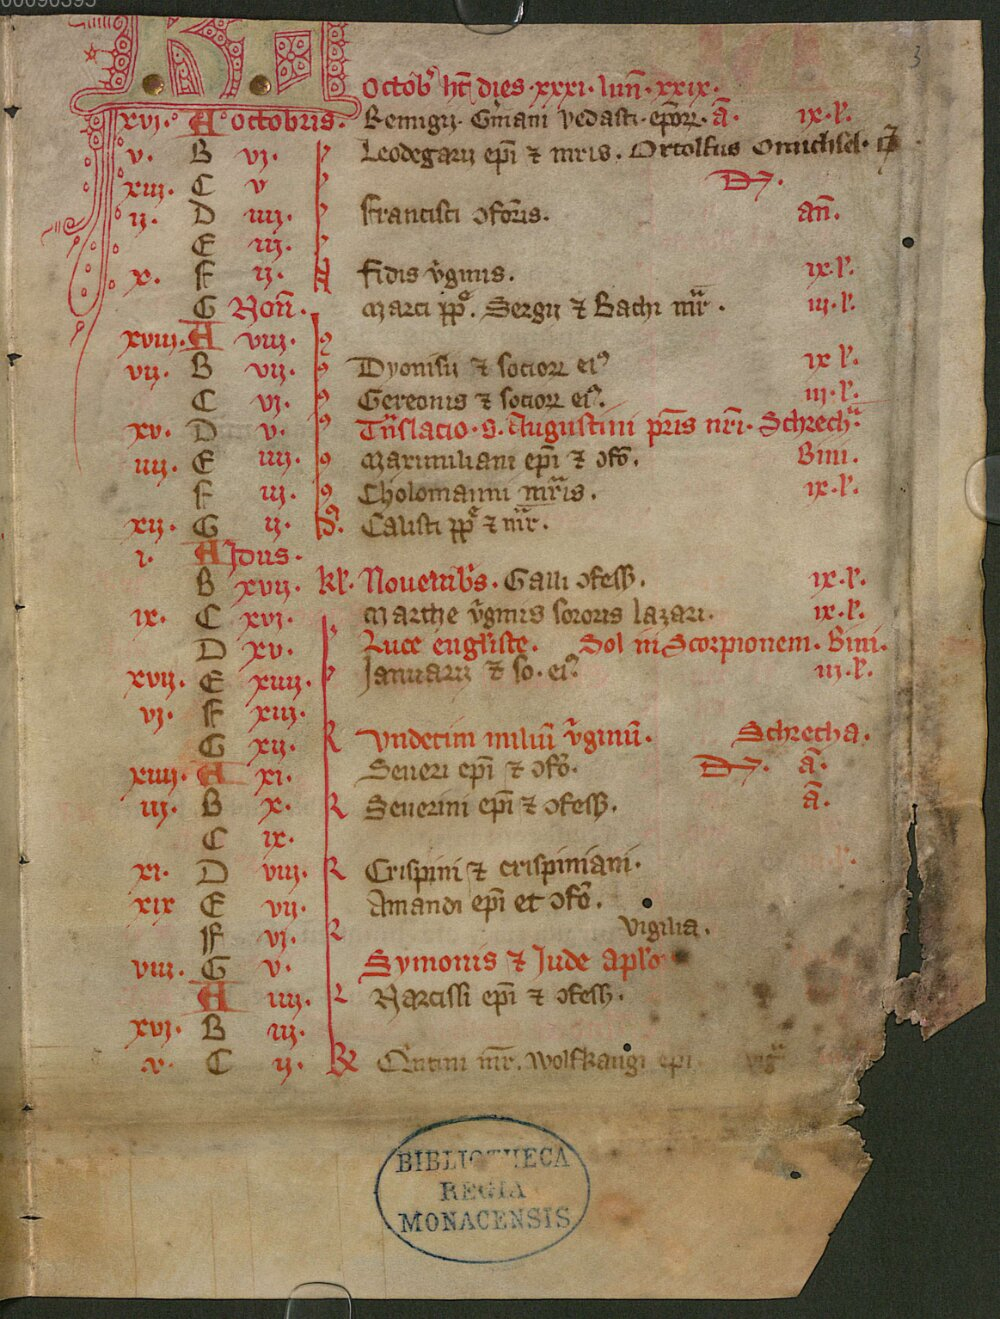 00090395
3
KL
Octob' hт dies · xxxi · lun̄ · xxix ·
xvi · A octobris · Remigii · G'mani vedasti · ep̄orꝝ · ā · ix · l'·
v · B vi · Leodegarii ep̄i ⁊ mr̄is ·
xiii · C v D ·
ii · D iiii · Francisci ↄfōris · an̄ ·
E iii ·
x · F ii · Fidis v̄ginis · ix · l'·
G Non̄ · Marci pp̄e · Sergii ⁊ Bachi mr̄ · iii · l'·
xviii · A viii ·
vii · B vii · Dyonisii ⁊ socioꝝ eiꝰ ix l'·
C vi · Gereonis ⁊ socioꝝ eiꝰ · iii · l'·
xv · D v · Tn̄slacio · s · Augustini pr̄is nr̄i · Schrech a ·
iiii · E iiii · Maximiliani ep̄i ⁊ ↄfō · Bini ·
F iii · Cholomanni mr̄is · ix · l'·
xii · G ii · Calisti pp̄e ⁊ mr̄ ·
i · A Idus ·
B xvii · kl' · Novembr̄s · Galli ↄfess̄ · ix · l'·
ix · C xvi · Marthe v̄ginis sororis lazari · ix · l'·
D xv · Luce ewgl'iste · Sol in Scorpionem · Bini ·
xvii · E xiiii · Januarii ⁊ so · eiꝰ iii · l'·
vi · F xiii ·
G xii · Undecim miliū v̄ginū · Schrecha ·
xiiii · A xi · Severi ep̄i ⁊ ↄfō · D · ā ·
iii · B x · Severini ep̄i ⁊ ↄfess̄ · ā ·
C ix ·
xi · D viii · Crispini ⁊ crispiniani ·
xix E vii · Amandi ep̄i et ↄfō ·
F vi · vigilia ·
viii · G v · Symonis ⁊ Jude apl'o
A iiii · Narcissi ep̄i ⁊ ↄfess̄ ·
xvi · B iii ·
v · C ii · Q'ntini mr̄ · wolfkangi ep̄i
BIBLIOTHECA
REGIA
MONACENSIS